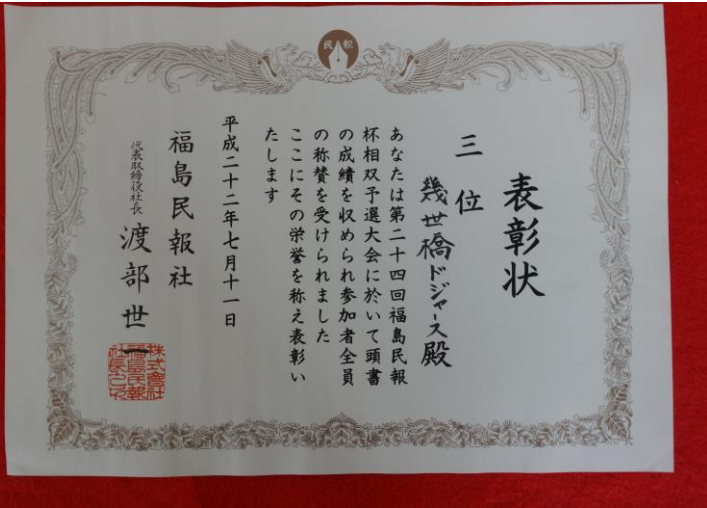 民報
表彰状
三位
幾世橋ドジャース殿
あなたは第二十四回福島民報
杯相双予選大会に於いて頭書
の成績を収められ参加者全員
の称賛を受けられました
ここにその栄誉を称え表彰い
たします
平成二十二年七月十一日
福島民報社
代表取締役社長 渡部世一
株式會社
福島民報
社長之印